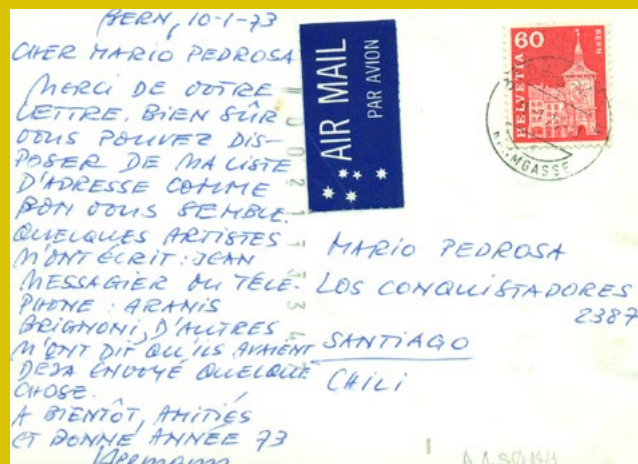 BERN, 10-1-73
CHER MARIO PEDROSA
MERCI DE VOTRE
LETTRE. BIEN SÛR
VOUS POUVEZ DIS-
POSER DE MA LISTE
D'ADRESSE COMME
BON VOUS SEMBLE.
QUELQUES ARTISTES
M'ONT ÉCRIT: JEAN
MESSAGIER OU TÉLÉ-
PHONE: ARANIS
BRIGNONI, D'AUTRES
M'ONT DIT QU'ILS AVAIENT
DEJA ENVOYÉ QUELQUE
CHOSE.
A BIENTÔT, AMITIÉS
ET BONNE ANNÉE 73
AIR MAIL
PAR AVION
60
BERN
HELVETIA
MARIO PEDROSA
LOS CONQUISTADORES
2387
SANTIAGO
CHILI
00211334